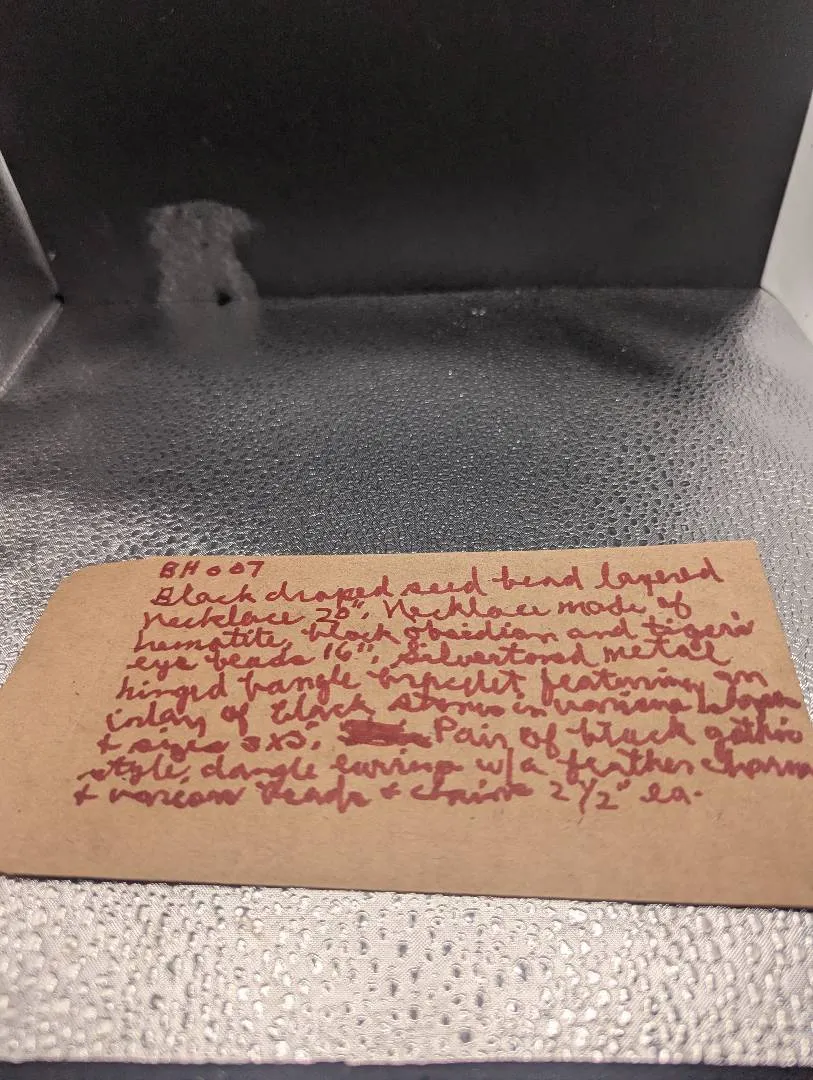 BH007
Black draped seed bead layered
necklace 20", Necklace made of
hematite, black obsidian and tiger's
eye beads 16", Silvertoned metal
hinged bangle bracelet featuring an
inlay of black stones in various
+ sizes 3x3", Pair of black gothic
style, dangle earrings w/a feather charm
+ various beads + chains 2 1/2" ea.